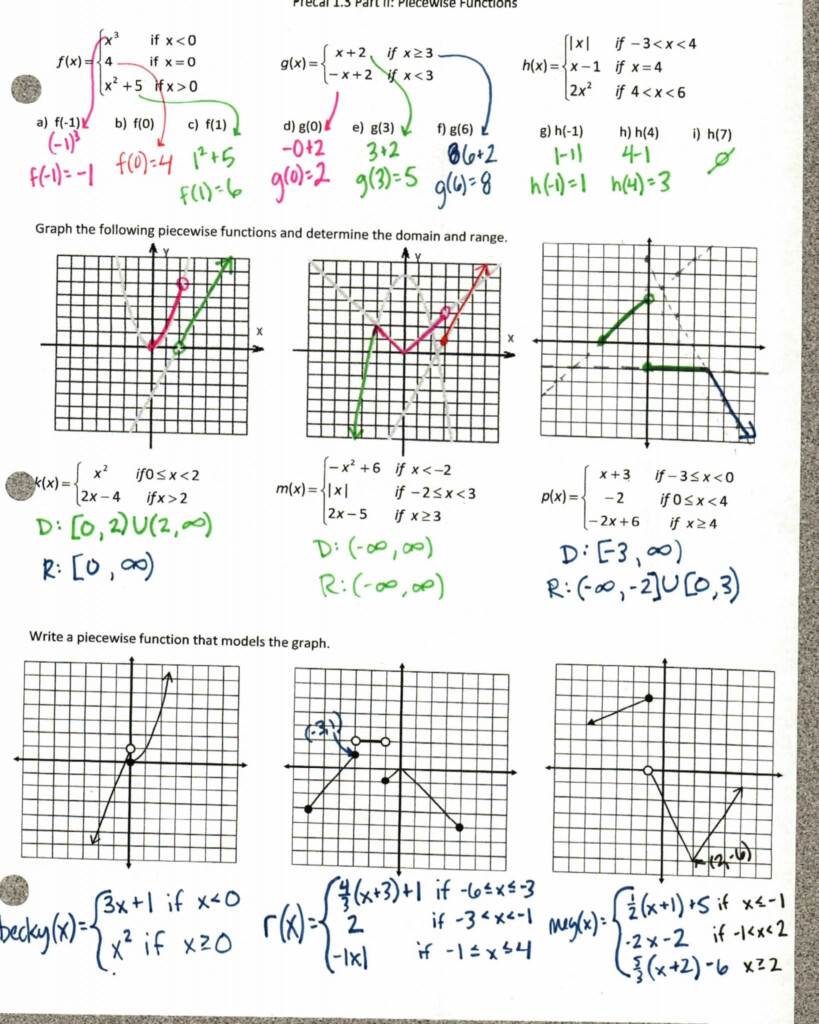 Precal 1.3 Part II: Piecewise Functions
f(x)= { x³ if x<0
4 if x=0
x²+5 if x>0
g(x)= { x+2 if x≥3
-x+2 if x<3
h(x)= { |x| if -3<x<4
x-1 if x=4
2x² if 4<x<6
a) f(-1) b) f(0) c) f(1) d) g(0) e) g(3) f) g(6) g) h(-1) h) h(4) i) h(7)
(-1)³ 1²+5 -0+2 3+2 6+2 |-1| 4-1 ∅
f(-1)=-1 f(0)=4 f(1)=6 g(0)=2 g(3)=5 g(6)=8 h(-1)=1 h(4)=3
Graph the following piecewise functions and determine the domain and range.
Y Y
X X
k(x)= { x² if 0≤x<2
2x-4 if x>2
D: [0,2)∪(2,∞)
R: [0,∞)
m(x)= { -x²+6 if x<-2
|x| if -2≤x<3
2x-5 if x≥3
D: (-∞,∞)
R: (-∞,∞)
p(x)= { x+3 if -3≤x<0
-2 if 0≤x<4
-2x+6 if x≥4
D: [-3,∞)
R: (-∞,-2]∪[0,3)
Write a piecewise function that models the graph.
(-3,1)
(2,-6)
becky(x)= { 3x+1 if x<0
x² if x≥0
r(x)= { 4/3(x+3)+1 if -6≤x≤-3
2 if -3<x<-1
-|x| if -1≤x≤4
meg(x)= { 1/2(x+1)+5 if x≤-1
-2x-2 if -1<x<2
5/3(x+2)-6 x≥2